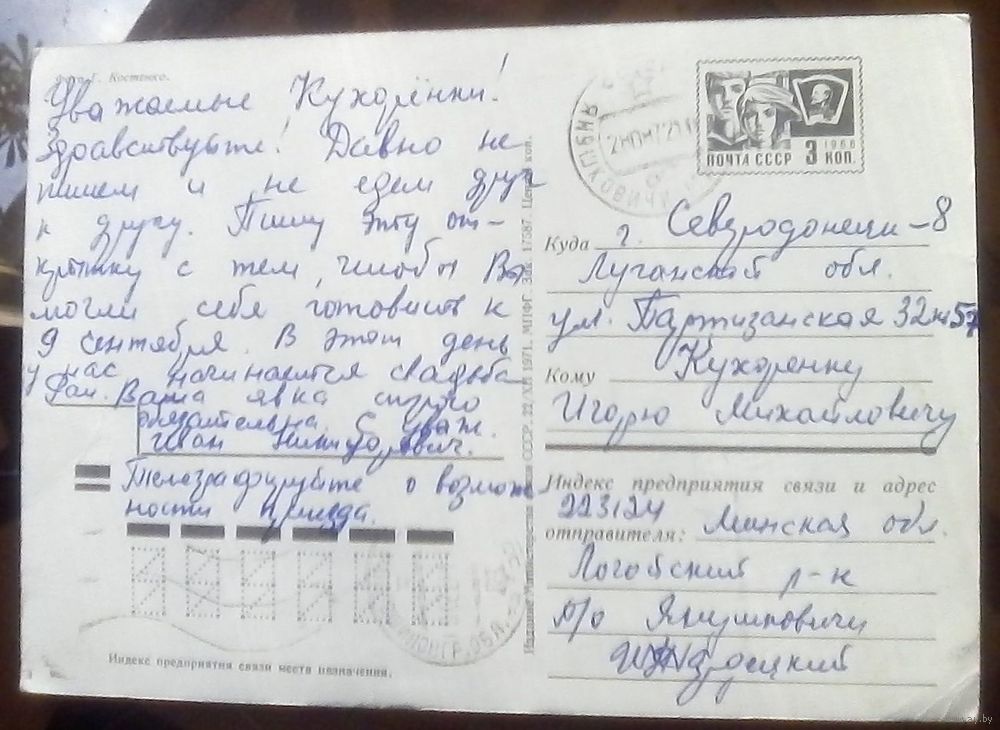 Фото Г. Костенко.
Уважаемые Кухорёнки!
Здравствуйте! Давно не
пишем и не едем друг
к другу. Пишу эту от-
крытку с тем, чтобы Вы
могли себя готовить к
9 сентября. В этот день
у нас начинается свадьба
Ваша явка строго
обязательна. С уваж.
Иван Никифорович.
Телеграфируйте о возмож-
ности приезда.
Индекс предприятия связи места назначения.
Издание Министерства связи СССР. 22/XII 1971. МПФГ. Зак. 17587. Цена коп.
ПОЧТА СССР 3 КОП.
1966
Куда г. Северодонецк-8
Луганской обл.
ул. Партизанская 32
Кому Кухоренку
Игорю Михайловичу
Индекс предприятия связи и адрес
отправителя: 223124 Минская обл.
Логойский р-н
п/о Янушковичи